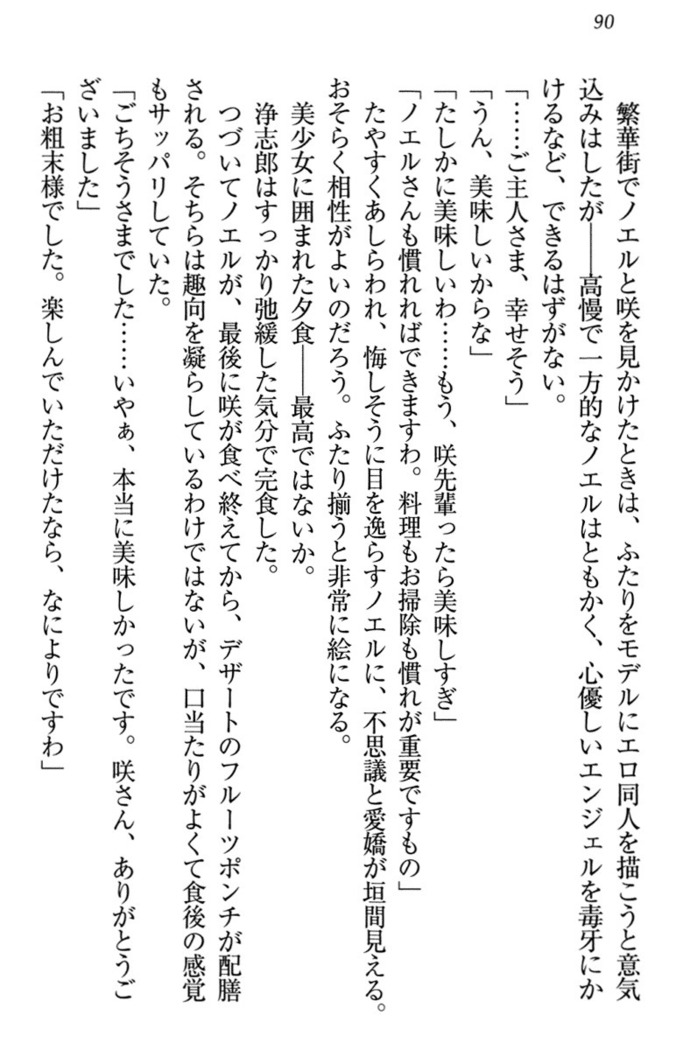 90
繁華街でノエルと咲を見かけたときは、ふたりをモデルにエロ同人を描こうと意気
込みはしたが――高慢で一方的なノエルはともかく、心優しいエンジェルを毒牙にか
けるなど、できるはずがない。
「……ご主人さま、幸せそう」
「うん、美味しいからな」
「たしかに美味しいわ……もう、咲先輩ったら美味しすぎ」
「ノエルさんも慣れればできますわ。料理もお掃除も慣れが重要ですもの」
たやすくあしらわれ、悔しそうに目を逸らすノエルに、不思議と愛嬌が垣間見える。
おそらく相性がよいのだろう。ふたり揃うと非常に絵になる。
美少女に囲まれた夕食――最高ではないか。
浄志郎はすっかり弛緩した気分で完食した。
つづいてノエルが、最後に咲が食べ終えてから、デザートのフルーツポンチが配膳
される。そちらは趣向を凝らしているわけではないが、口当たりがよくて食後の感覚
もサッパリしていた。
「ごちそうさまでした……いやぁ、本当に美味しかったです。咲さん、ありがとうご
ざいました」
「お粗末様でした。楽しんでいただけたなら、なによりですわ」